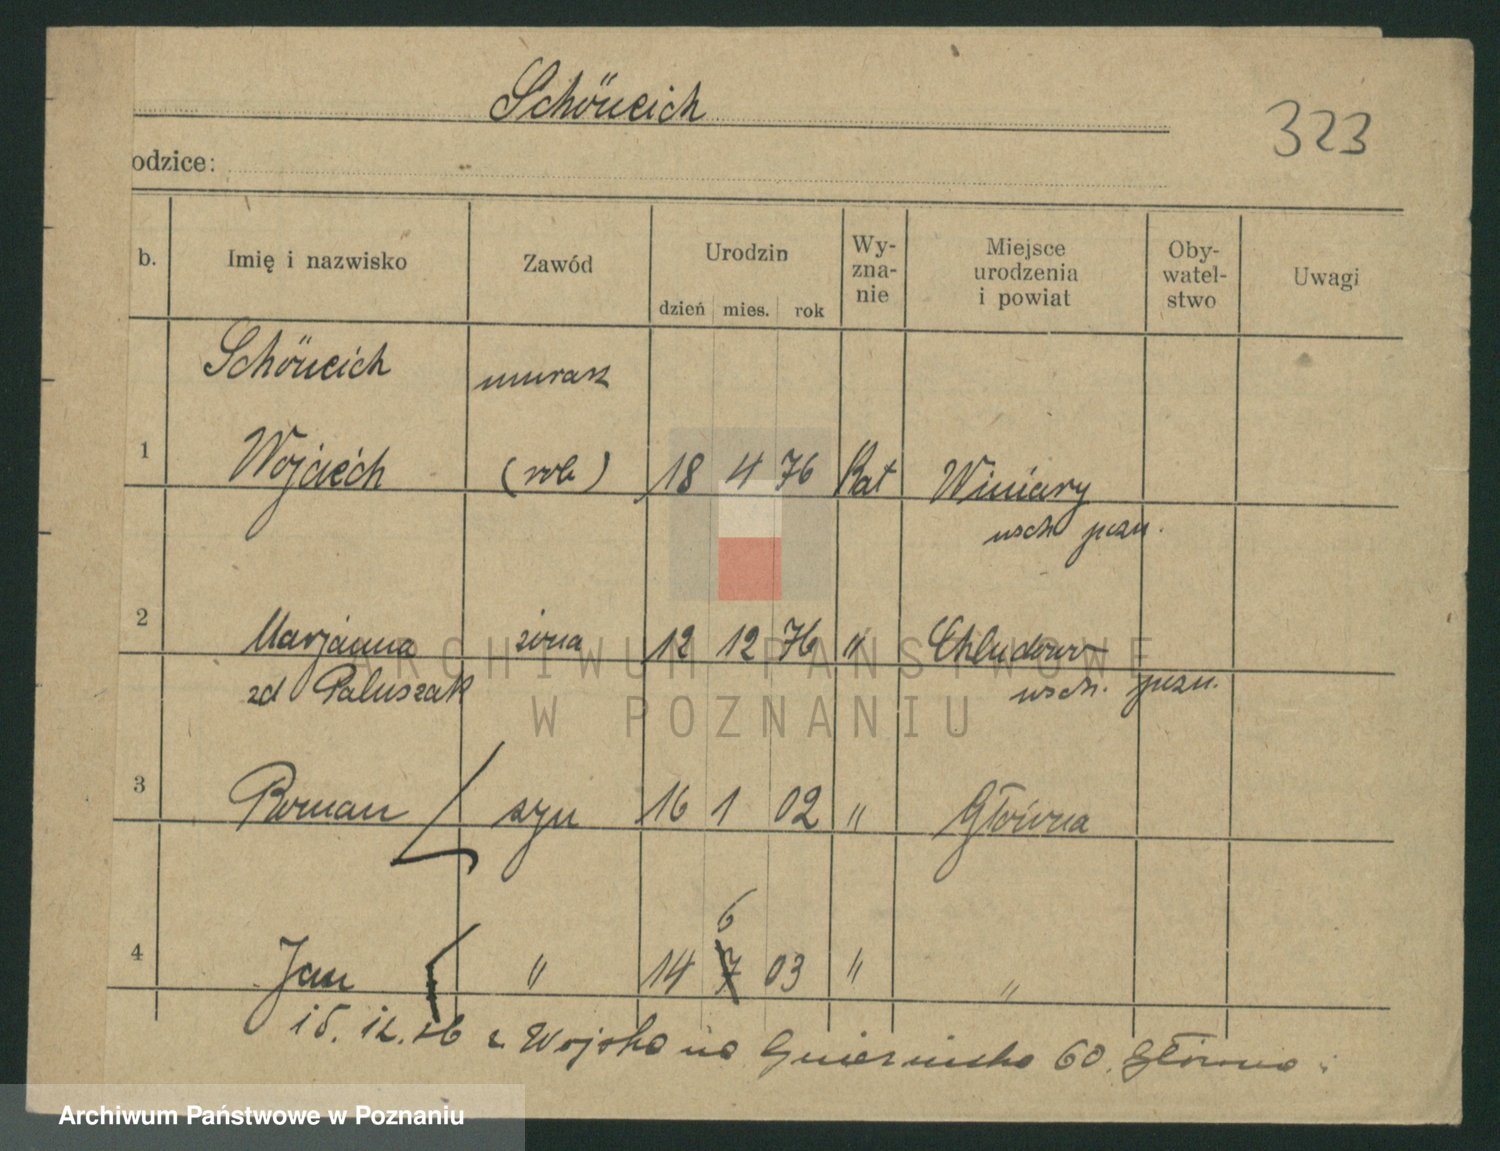 Schöneich
323
odzice:
b. Imię i nazwisko Zawód Urodzin dzień mies. rok Wy-zna-nie Miejsce urodzenia i powiat Oby-watel-stwo Uwagi
Schöneich murarz
1 Wojciech (rob) 18 4 76 Kat Winiary
wsch pozn.
2 Marjanna żona 12 12 76 " Chludowo
zd Paluszak wsch. pozn.
3 Roman syn 16 1 02 " Główna
6
4 Jan " 14 7 03 " "
15. 12. 26 z Wojska na Gnieznieńska 60. Główna
ARCHIWUM PAŃSTWOWE
W POZNANIU
Archiwum Państwowe w Poznaniu